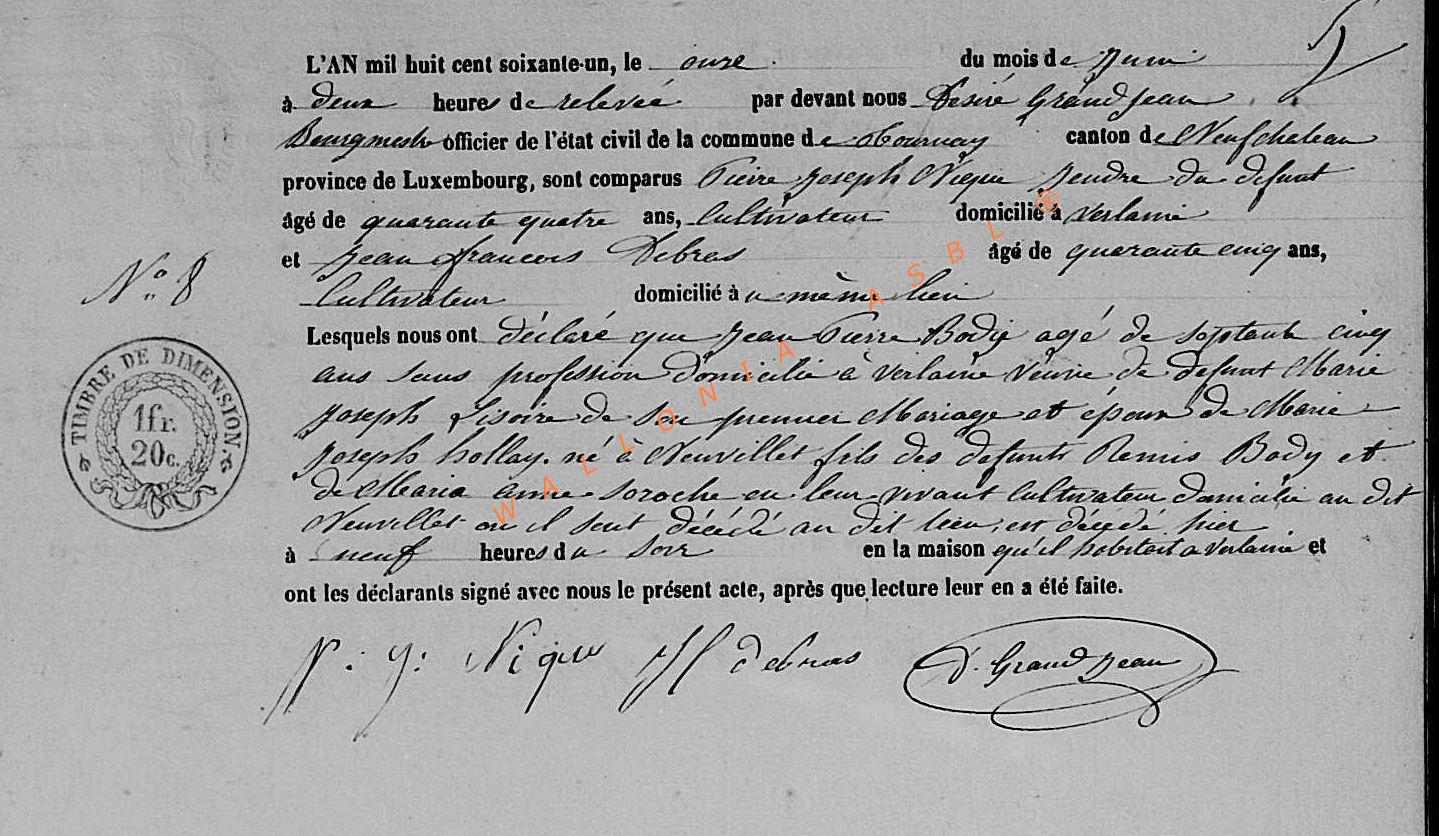 L'AN mil huit cent soixante-un, le onze du mois de Juin
à deux heures de relevée par devant nous Désiré Grandjean
Bourgmestre officier de l'état civil de la commune de Tournay canton de Neufchateau
province de Luxembourg, sont comparus Pierre Joseph Nique gendre du defunt
âgé de quarante quatre ans, Cultivateur domicilié à Verlaine
et Jean francois Debras âgé de quarante cinq ans,
N° 8
Cultivateur domicilié à u même lieu
Lesquels nous ont déclaré que Jean Pierre Body agé de septante cinq
ans sans profession domicilié à Verlaine veuve de defunt Marie
Joseph Lisoire de son premier Mariage et époux de Marie
Joseph hollay né à Neuvillet fils des defunts Remis Body et
de Maria anne Soroche en leur vivant Cultivateur domicilié au dit
Neuvillet ou il sont décédé au dit lieu, est décédé hier
à neuf heures du soir en la maison qu'il habitoit a Verlaine et
ont les déclarants signé avec nous le présent acte, après que lecture leur en a été faite.
TIMBRE DE DIMENSION
1 fr.
20 c.
P: J: Nique JF debras D. Grandjean
WALLONIA ASBL ®